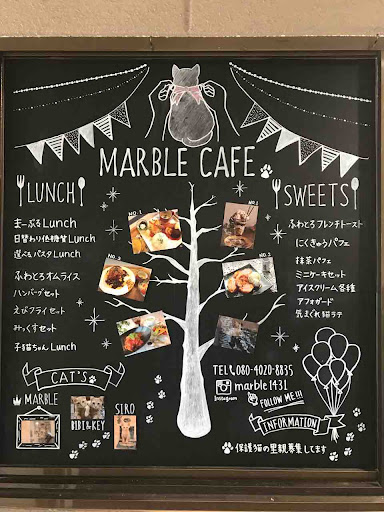 MARBLE CAFE
LUNCH
まーぶるLunch
日替わり低糖質Lunch
選べるパスタLunch
ふわとろオムライス
ハンバーグセット
えびフライセット
みっくすセット
子猫ちゃんLunch
NO.1
NO.2
NO.3
NO.1
NO.2
SWEETS
ふわとろフレンチトースト
にくきゅうパフェ
抹茶パフェ
ミニケーキセット
アイスクリーム各種
アフォガード
気まぐれ猫ラテ
CAT'S
MARBLE
BIBI&KEY
SIRO
TEL 080-4020-8835
marble1431
Instagram
FOLLOW ME!!!
INFORMATION
保護猫の里親募集してます